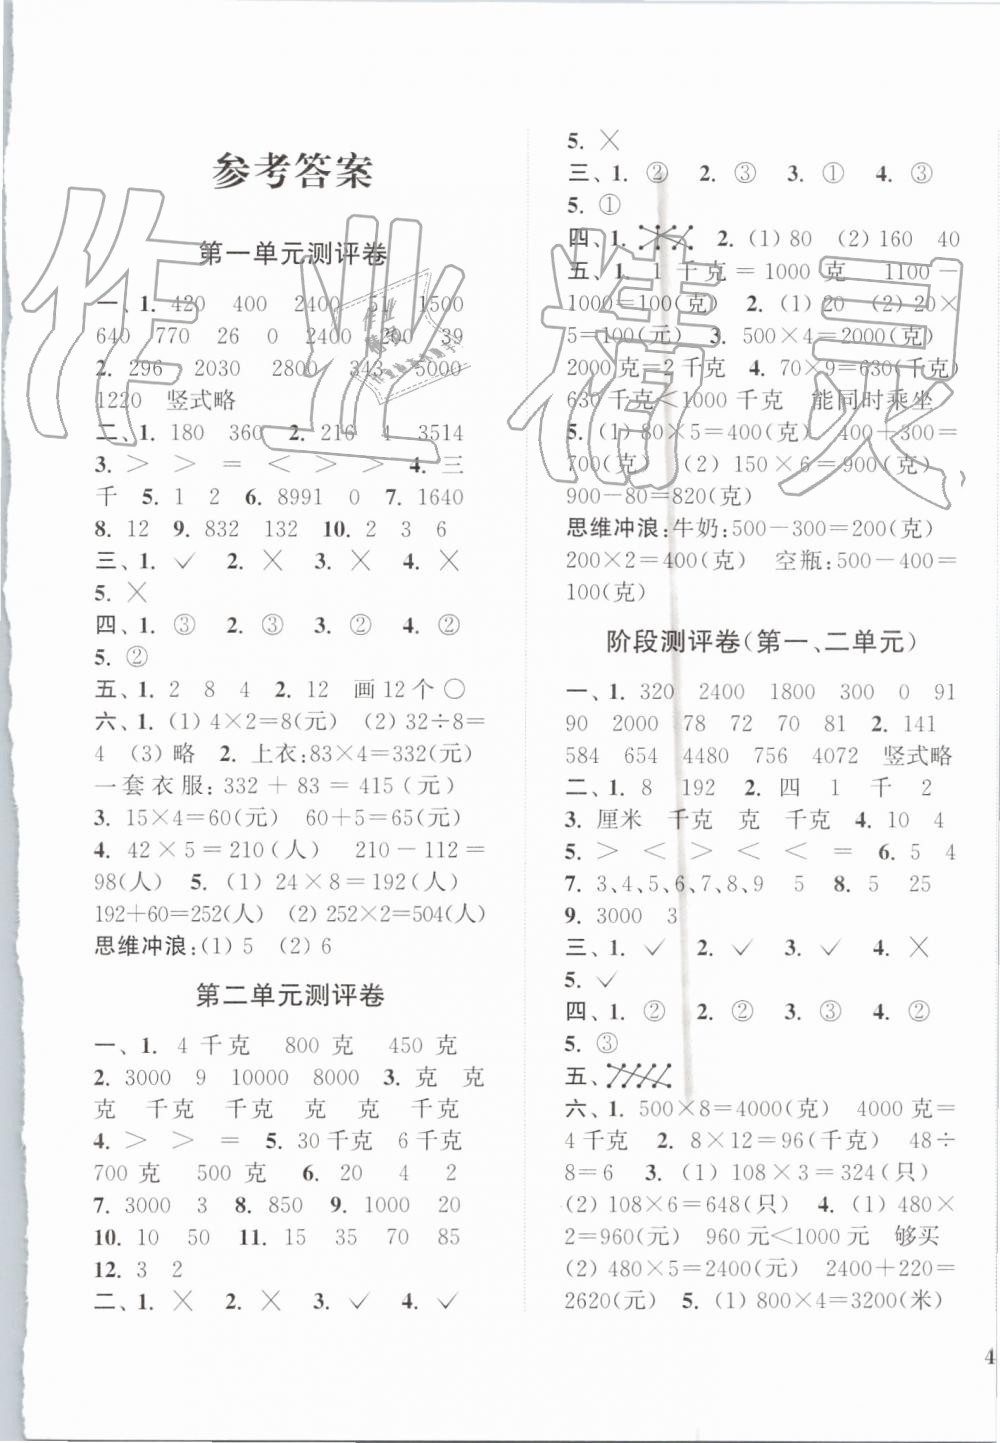 参考答案
第一单元测评卷
一、1. 420 400 2400 51 1500
640 770 26 0 2400 200 39
2. 296 2030 2800 343 5000
1220 竖式略
二、1. 180 360 2. 216 4 3514
3. > > = < > > 4. 三
千 5. 1 2 6. 8991 0 7. 1640
8. 12 9. 832 132 10. 2 3 6
三、1. ✓ 2. × 3. × 4. ×
5. ×
四、1. ③ 2. ③ 3. ② 4. ②
5. ②
五、1. 2 8 4 2. 12 画12个○
六、1. (1) 4×2=8(元) (2) 32÷8=
4 (3) 略 2. 上衣:83×4=332(元)
一套衣服: 332 + 83 = 415 (元)
3. 15×4=60(元) 60+5=65(元)
4. 42 × 5 = 210 (人) 210 - 112 =
98(人) 5. (1) 24×8=192(人)
192+60=252(人) (2) 252×2=504(人)
思维冲浪:(1) 5 (2) 6
第二单元测评卷
一、1. 4 千克 800 克 450 克
2. 3000 9 10000 8000 3. 克 克
克 千克 千克 克 克 千克
4. > > = 5. 30千克 6千克
700 克 500 克 6. 20 4 2
7. 3000 3 8. 850 9. 1000 20
10. 10 50 11. 15 35 70 85
12. 3 2
二、1. × 2. × 3. ✓ 4. ✓
5. ×
三、1. ② 2. ③ 3. ① 4. ③
5. ①
四、1. 2. (1) 80 (2) 160 40
五、1. 1 千克 = 1000 克 1100-
1000=100(克) 2. (1) 20 (2) 20×
5=100(元) 3. 500×4=2000(克)
2000克=2 千克 4. 70×9=630(千克)
630 千克<1000 千克 能同时乘坐
5. (1) 80×5=400(克) 400+300=
700(克) (2) 150×6=900(克)
900-80=820(克)
思维冲浪:牛奶:500-300=200(克)
200×2=400(克) 空瓶:500-400=
100(克)
阶段测评卷(第一、二单元)
一、1. 320 2400 1800 300 0 91
90 2000 78 72 70 81 2. 141
584 654 4480 756 4072 竖式略
二、1. 8 192 2. 四 1 千 2
3. 厘米 千克 克 千克 4. 10 4
5. > < > < < = 6. 5 4
7. 3、4、5、6、7、8、9 5 8. 5 25
9. 3000 3
三、1. ✓ 2. ✓ 3. ✓ 4. ×
5. ✓
四、1. ② 2. ② 3. ③ 4. ②
5. ③
五、
六、1. 500×8=4000(克) 4000 克=
4 千克 2. 8×12=96(千克) 48÷
8=6 3. (1) 108×3=324(只)
(2) 108×6=648(只) 4. (1) 480×
2=960(元) 960 元<1000 元 够买
(2) 480×5=2400(元) 2400+220=
2620(元) 5. (1) 800×4=3200(米)
4
作业精灵